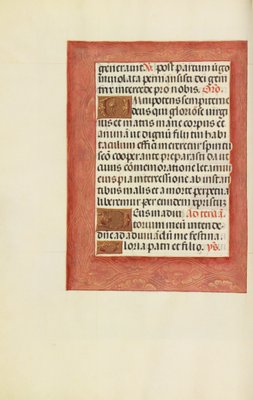 generavit. V. post partum v̄go
inviolata permansisti. dei geni
trix intercede pro nobis. Oro.
Omnipotens sempiterne
deus qui gloriose virgi
nis et matris marie corpus et
animā ut dignū filii tui habi
taculum effici mereretur spiritu
scō cooperante preparasti da ut
cuius comemoratione letamur
eius pia intercessione ab instan
tibus malis et a morte perpetua
liberemur per eundem xp̄m
Deus in adiu Ad terciā
torium meū intende
dn̄e ad adiuvandū me festina
loria patri et filio. yp̄s.